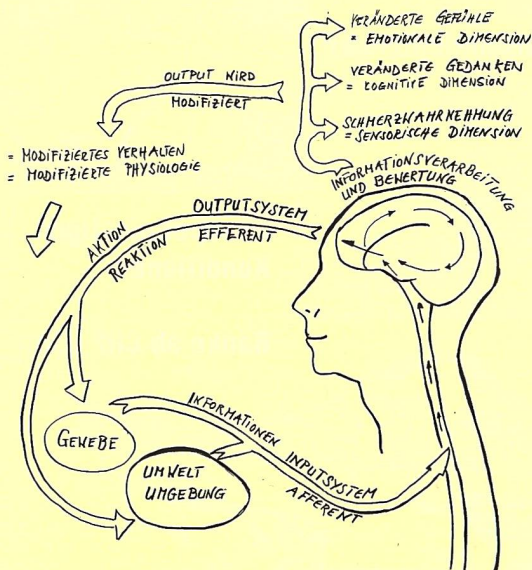 VERÄNDERTE GEFÜHLE
= EMOTIONALE DIMENSION
VERÄNDERTE GEDANKEN
= KOGNITIVE DIMENSION
SCHMERZWAHRNEHMUNG
= SENSORISCHE DIMENSION
OUTPUT WIRD
MODIFIZIERT
= MODIFIZIERTES VERHALTEN
= MODIFIZIERTE PHYSIOLOGIE
INFORMATIONSVERARBEITUNG
UND BEWERTUNG
OUTPUTSYSTEM
EFFERENT
AKTION
REAKTION
GEWEBE
UMWELT
UMGEBUNG
INFORMATIONEN
INPUTSYSTEM
AFFERENT